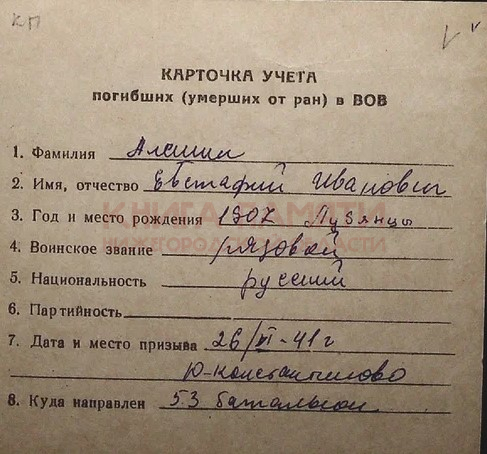 КП
КАРТОЧКА УЧЕТА
погибших (умерших от ран) в ВОВ
1. Фамилия Алешин
2. Имя, отчество Евстафий Иванович
3. Год и место рождения 1907 Лузянцы
КНИГА ПАМЯТИ
НИЖЕГОРОДСКОЙ ОБЛАСТИ
4. Воинское звание рядовой
5. Национальность русский
6. Партийность
7. Дата и место призыва 26/VI-41 г
Д-Константиново
8. Куда направлен 53 батальон